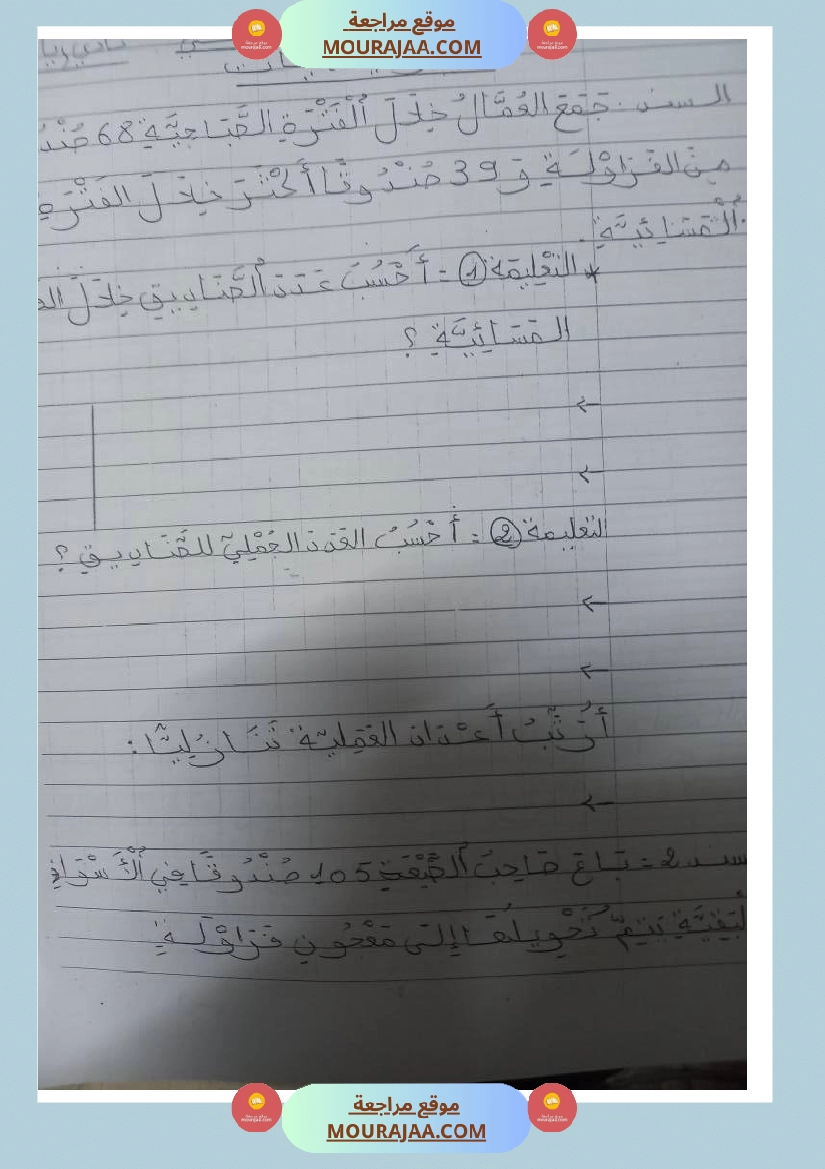 موقع مراجعة
MOURAJAA.COM
السند: جَمَعَ العُمَّالُ خِلَالَ الْفَتْرَةِ الصَّبَاحِيَّةِ 68
مِنَ الفَرَاوْلَةِ وَ 39 صُنْدُوقًا أَكْثَرَ خِلَالَ الفَتْرَةِ
الْمَسَائِيَّةِ.
* التعْلِيمَة ① = أَحْسُبُ عَدَدَ الصَّنَادِيقِ خِلَالَ
المَسَائِيَّةِ ؟
التعليمة ② = أَحْسُبُ العَدَدَ الجُمْلِيَّ للصَّنَادِيقِ ؟
أُرَتِّبُ أَعْدَادَ العَمَلِيَّة تَنَازُلِيًّا :
سند 2 = بَاعَ صَاحِبُ الضَّيْعَةِ 105 صُنْدُوقًا فِي الْأَسْوَاقِ
يَتِمُّ تَحْوِيلُهَا إِلَى مَعْجُونِ فَرَاوْلَةٍ
موقع مراجعة
MOURAJAA.COM